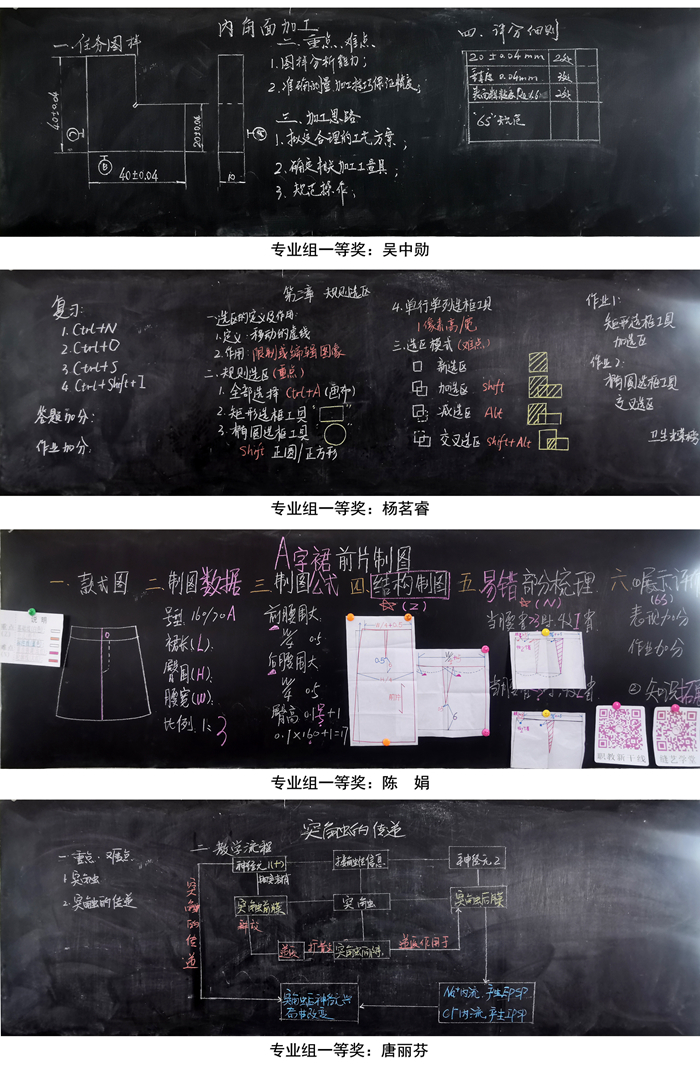 内角面加工
一.任务图样
40±0.04
20±0.04
C
B
A
40±0.04
10
二.重点、难点
1.图样分析能力;
2.准确测量加工技巧保证精度;
三.加工思路
1.拟定合理的工艺方案;
2.确定相关加工工量具;
3.规范操作;
四.评分细则
20±0.04mm 2处
垂直度 0.04mm 3处
2处
"6S"规范
专业组一等奖：吴中勋
第二章 规则选区
复习:
1.Ctrl+N
2.Ctrl+O
3.Ctrl+S
4.Ctrl+Shift+I
答题加分:
作业加分:
一.选区的定义及作用:
1.定义:移动的虚线
2.作用:限制或编辑图像
二.规则选区(重点)
1.全部选择 Ctrl+A(画布)
2.矩形选框工具
3.椭圆选框工具
Shift 正圆/正方形
4.单行单列选框工具
1像素高/宽
三.选区模式(难点)
新选区
加选区 Shift
减选区 Alt
交叉选区 Shift+Alt
作业1:
矩形选框工具
加选区
作业2:
椭圆选框工具
交叉选区
专业组一等奖：杨茗睿
A字裙前片制图
一.款式图
二.制图数据
号型:160/70A
裙长(L):
臀围(H):
腰宽(W):
比例 1:3
三.制图公式
前腰围大
W/4 0.5
后腰围大
W/4 0.5
臀高 0.1号+1
0.1×160+1=17
四.结构制图
☆(Z)
五.易错部分梳理
☆(N)
六.①展示评价
(6S)
表现加分
作业加分
职教新干线
专业组一等奖：陈 娟
突触的传递
一.重点、难点
1.突触
2.突触的传递
二.教学流程
突触的传递
神经元1(+)
接触性信息
神经元2
突触前膜
突触
突触后膜
释放
递质
扩散
突触间隙
递质作用于
Na⁺内流、产生EPSP
Cl⁻内流、产生IPSP
突触后神经元兴奋性改变
专业组一等奖：唐丽芬